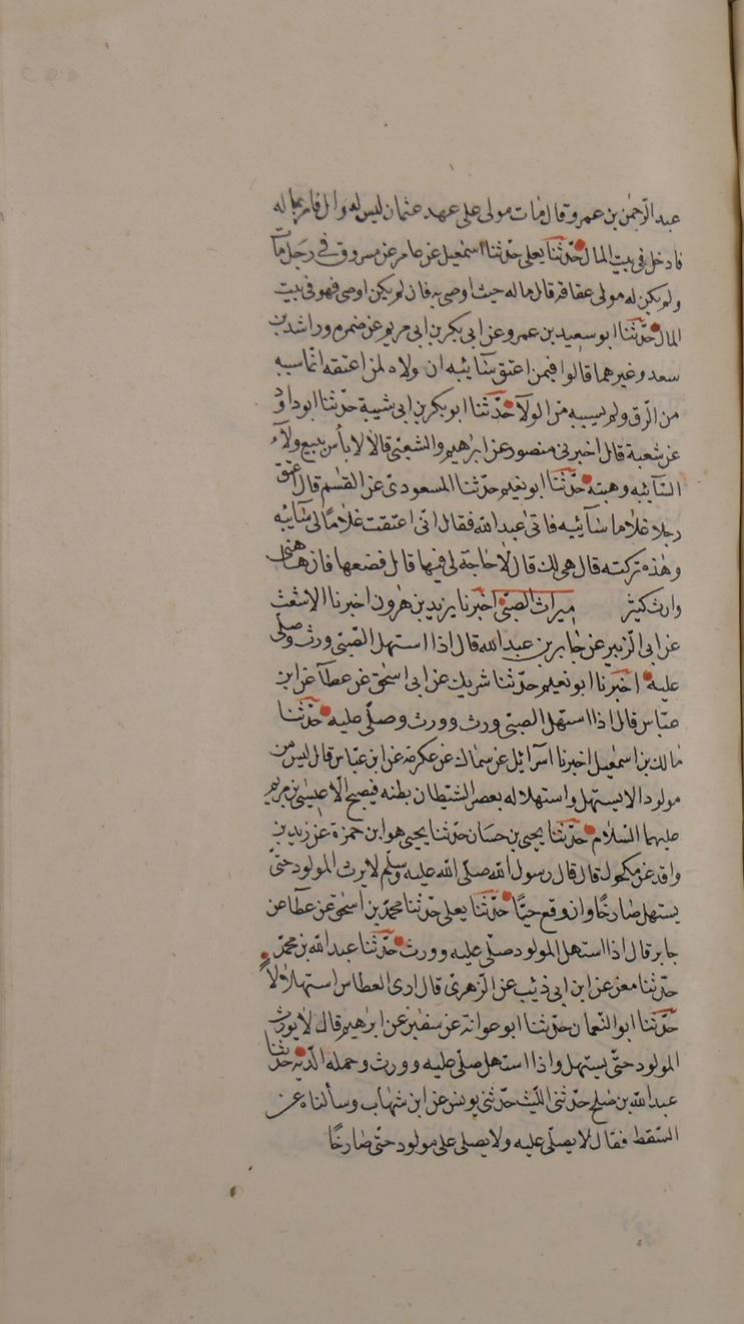 عبد الرحمن بن عمرو قال مات مولى على عهد عثمان ليس له وال فامر بماله
فادخل فى بيت المال حدثنا يعلى حدثنا اسمعيل عن عامر عن مسروق فى رجل مات
ولم يكن له مولى عتاقة قال ماله حيث اوصى به فان لم يكن اوصى فهو فى بيت
المال حدثنا ابو سعيد بن عمرو عن ابى بكر بن ابى مريم عن ضمرة وراشد بن
سعد وغيرهما قالوا فيمن اعتق سائبه ان ولاه لمن اعتقه انما سيبه
من الرق ولم يسيبه من الولآ حدثنا ابو بكر بن ابى شيبة حدثنا ابو داود
عن شعبة قال اخبرنى منصور عن ابرهيم والشعبى قالا لا باس ببيع ولآء
السآئبه وهبته حدثنا ابو نعيم حدثنا المسعودى عن القسم قال اعتق
رجلا غلاما سآئبه فاتى عبد الله فقال انى اعتقت غلامًا لى سآئبه
وهذه تركته قال هى لك قال لا حاجة لى فيها قال فضعها فان هاهنى
وارث كثير ميراث الصبى اخبرنا يزيد بن هرون اخبرنا الاشعث
عن ابى الزبير عن جابر بن عبد الله قال اذا استهل الصبى ورث وصلى
عليه اخبرنا ابو نعيم حدثنا شريك عن ابى اسحق عن عطآ عن ابن
عباس قال اذا استهل الصبى ورث وورث وصلى عليه حدثنا
مالك بن اسمعيل اخبرنا اسرآئيل عن سماك عن عكرمة عن ابن عباس قال ليس من
مولود الا يستهل واستهلاله بعصر الشيطان بطنه فيصيح الا عيسى بن مريم
عليهما السلام حدثنا يحيى بن حسان حدثنا يحيى هو ابن حمزة عن زيد بن
واقد عن مكحول قال قال رسول الله صلى الله عليه وسلم لا يرث المولود حتى
يستهل صارخًا وان وقع حيًا حدثنا يعلى حدثنا محمد بن اسحق عن عطآ عن
جابر قال اذا استهل المولود صلى عليه وورث حدثنا عبد الله بن محمد
حدثنا معن عن ابن ابى ذيب عن الزهرى قال ارى العطاس استهلالاً
حدثنا ابو النعمان حدثنا ابو عوانة عن سفين عن ابرهيم قال لا يورث
المولود حتى يستهل واذا استهل صلى عليه وورث وحمله الديه حدثنا
عبد الله بن صلح حدثنى الليث حدثنى يونس عن ابن شهاب وسألناه عن
السقط فقال لا يصلى عليه ولا يصلى على مولود حتى صارخًا